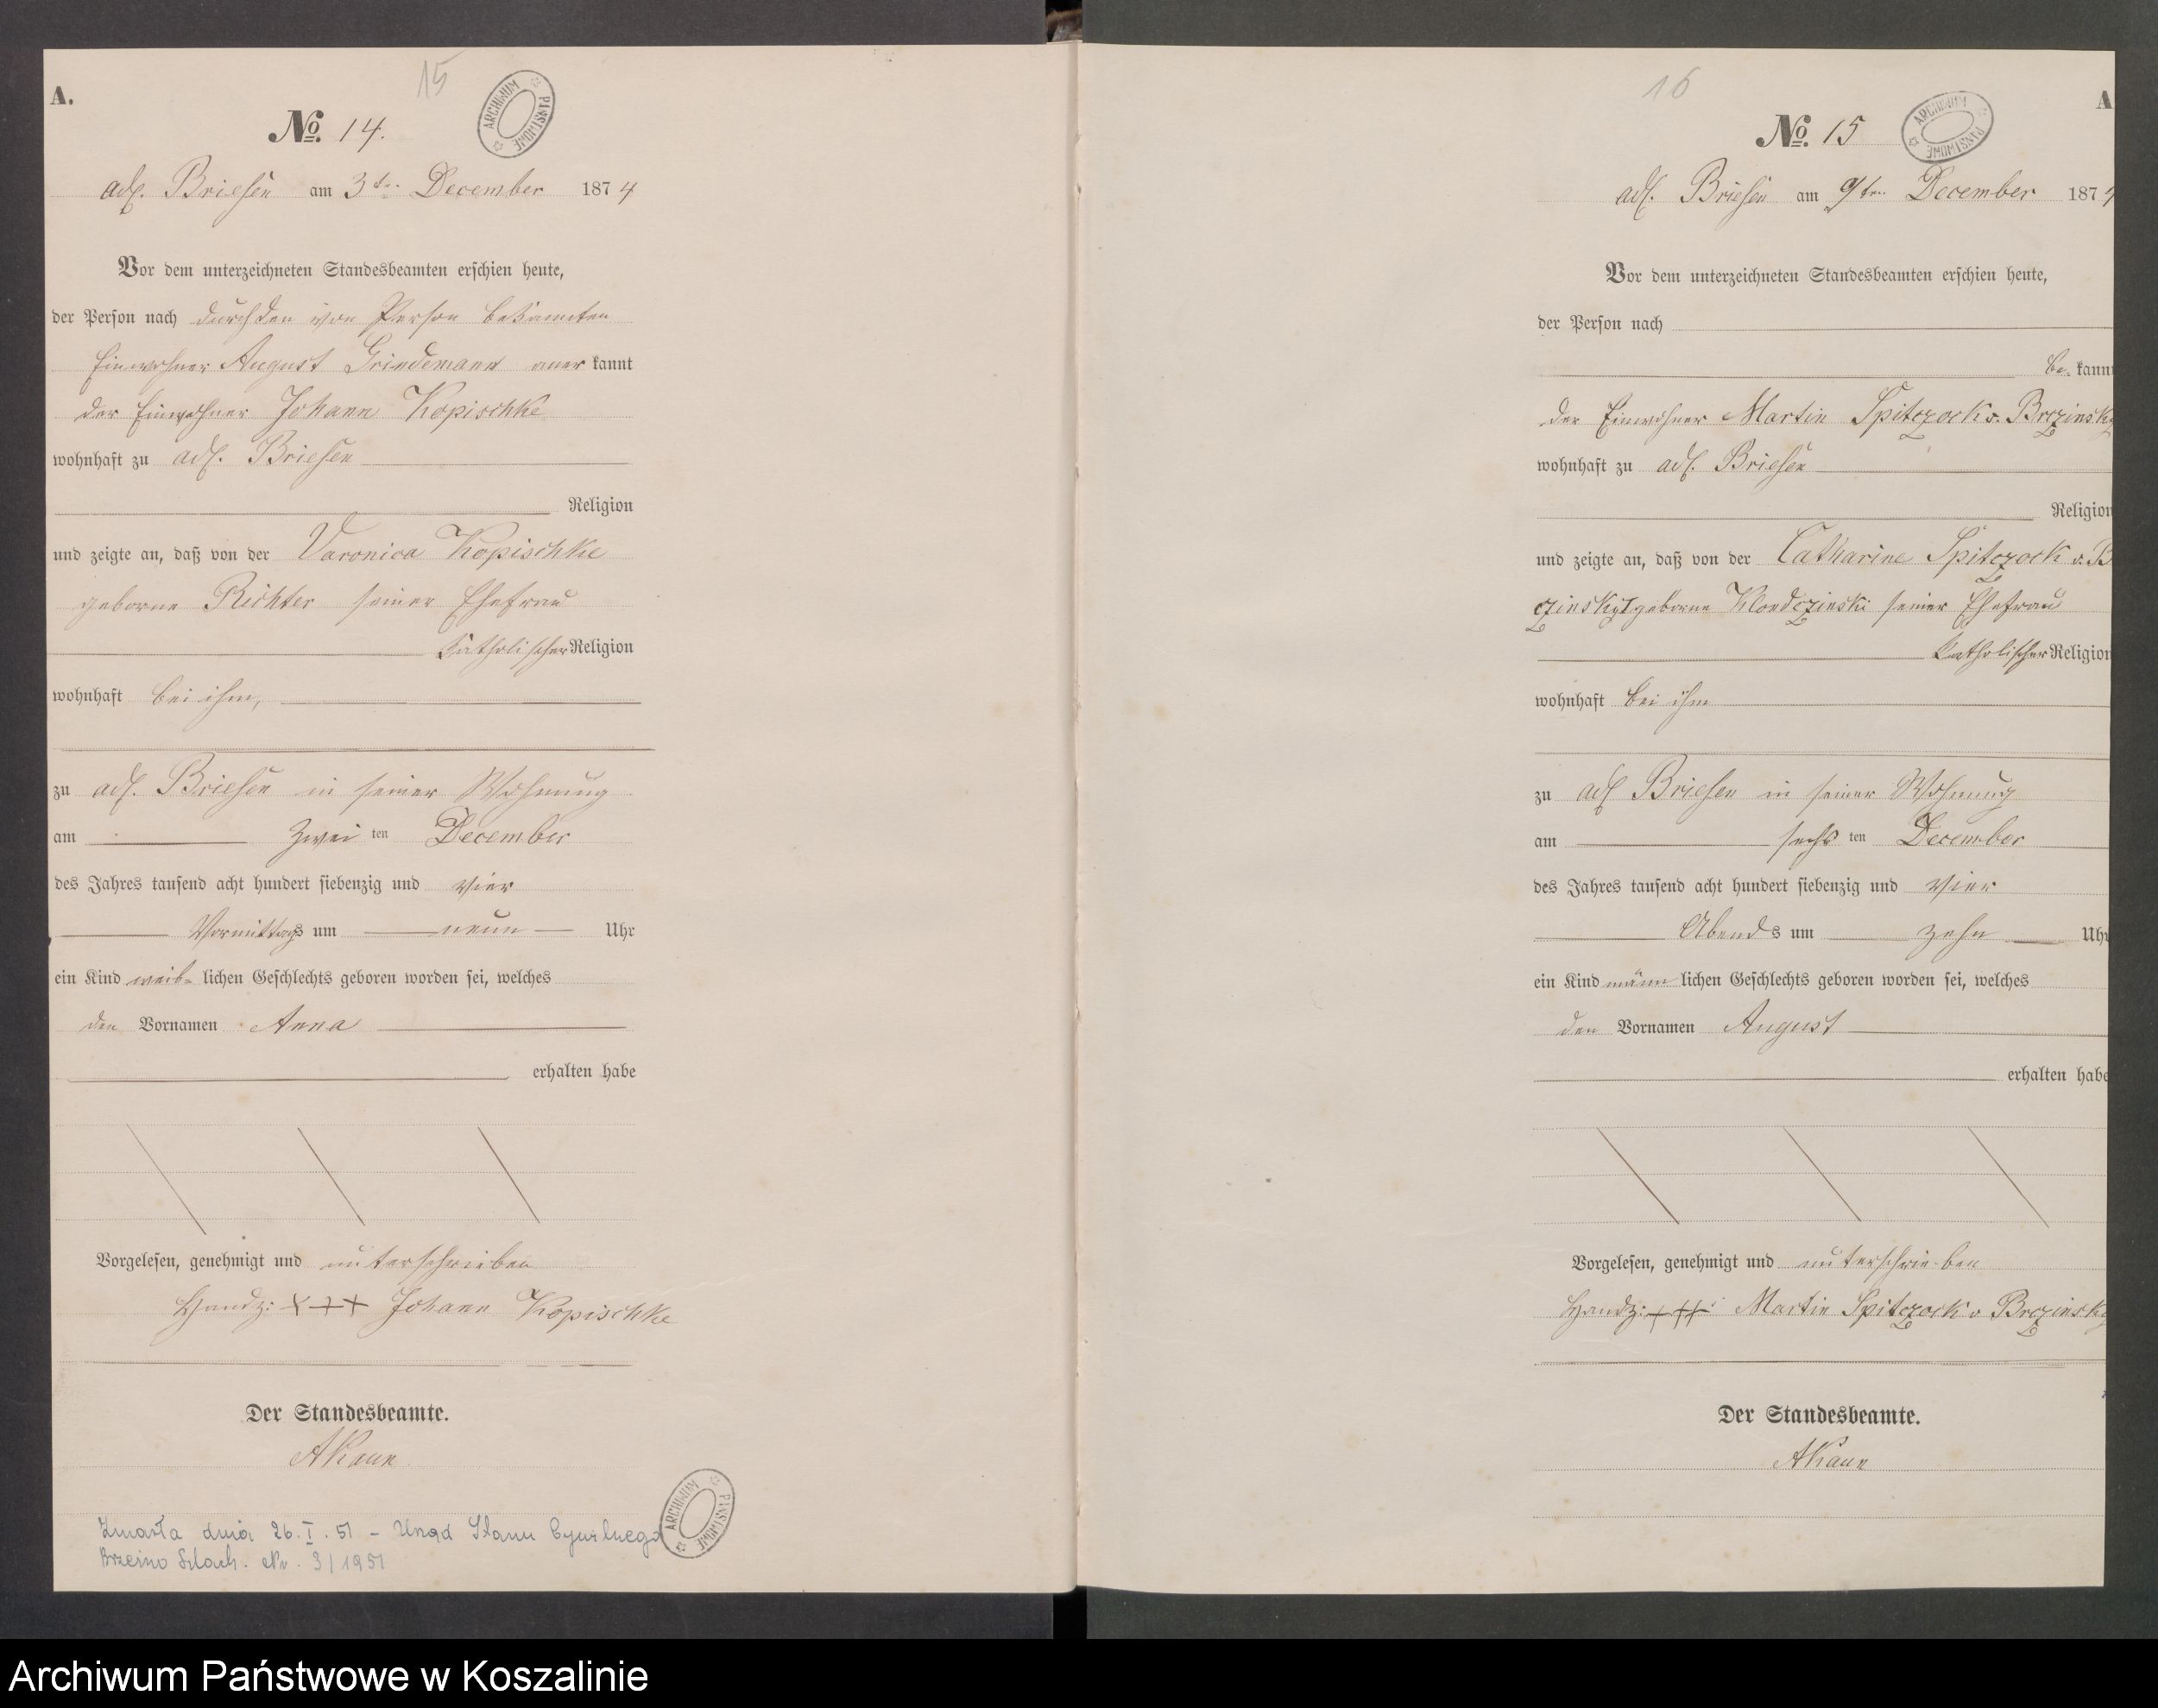 A.
15
No. 14.
ARCHIWUM PAŃSTWOWE
adl. Briesen am 3ten December 1874
Vor dem unterzeichneten Standesbeamten erschien heute,
der Person nach durch den von Person bekannten
Einwohner August Griedemann aner kannt
der Einwohner Johann Kopischke
wohnhaft zu adl. Briesen
Religion
und zeigte an, daß von der Varonica Kopischke
geborne Richter seiner Ehefrau
katholischer Religion
wohnhaft bei ihm,
zu adl. Briesen in seiner Wohnung
am zwei ten December
des Jahres tausend acht hundert siebenzig und vier
Vormittags um neun Uhr
ein Kind weib- lichen Geschlechts geboren worden sei, welches
den Vornamen Anna
erhalten habe
Vorgelesen, genehmigt und unterschrieben
Handz: +++ Johann Kopischke
Der Standesbeamte.
AKaun
Zmarła dnia 26.I.51 – Urząd Stanu Cywilnego
Brzeźno Szlach. Nr. 3/1951
ARCHIWUM PAŃSTWOWE
16
A
No. 15
ARCHIWUM PAŃSTWOWE
adl. Briesen am 9ten December 1874
Vor dem unterzeichneten Standesbeamten erschien heute,
der Person nach
be- kannt
der Einwohner Martin Spitczock v. Brczinsky
wohnhaft zu adl. Briesen
Religion
und zeigte an, daß von der Catharine Spitczock v. B
czinsky geborne Klondczinski seiner Ehefrau
katholischer Religion
wohnhaft bei ihm
zu adl Briesen in seiner Wohnung
am sechs ten December
des Jahres tausend acht hundert siebenzig und vier
Abends um zehn Uhr
ein Kind männ lichen Geschlechts geboren worden sei, welches
den Vornamen August
erhalten habe
Vorgelesen, genehmigt und unterschrieben
Handz: +++ Martin Spitczock v Brczinsky
Der Standesbeamte.
AKaun
Archiwum Państwowe w Koszalinie